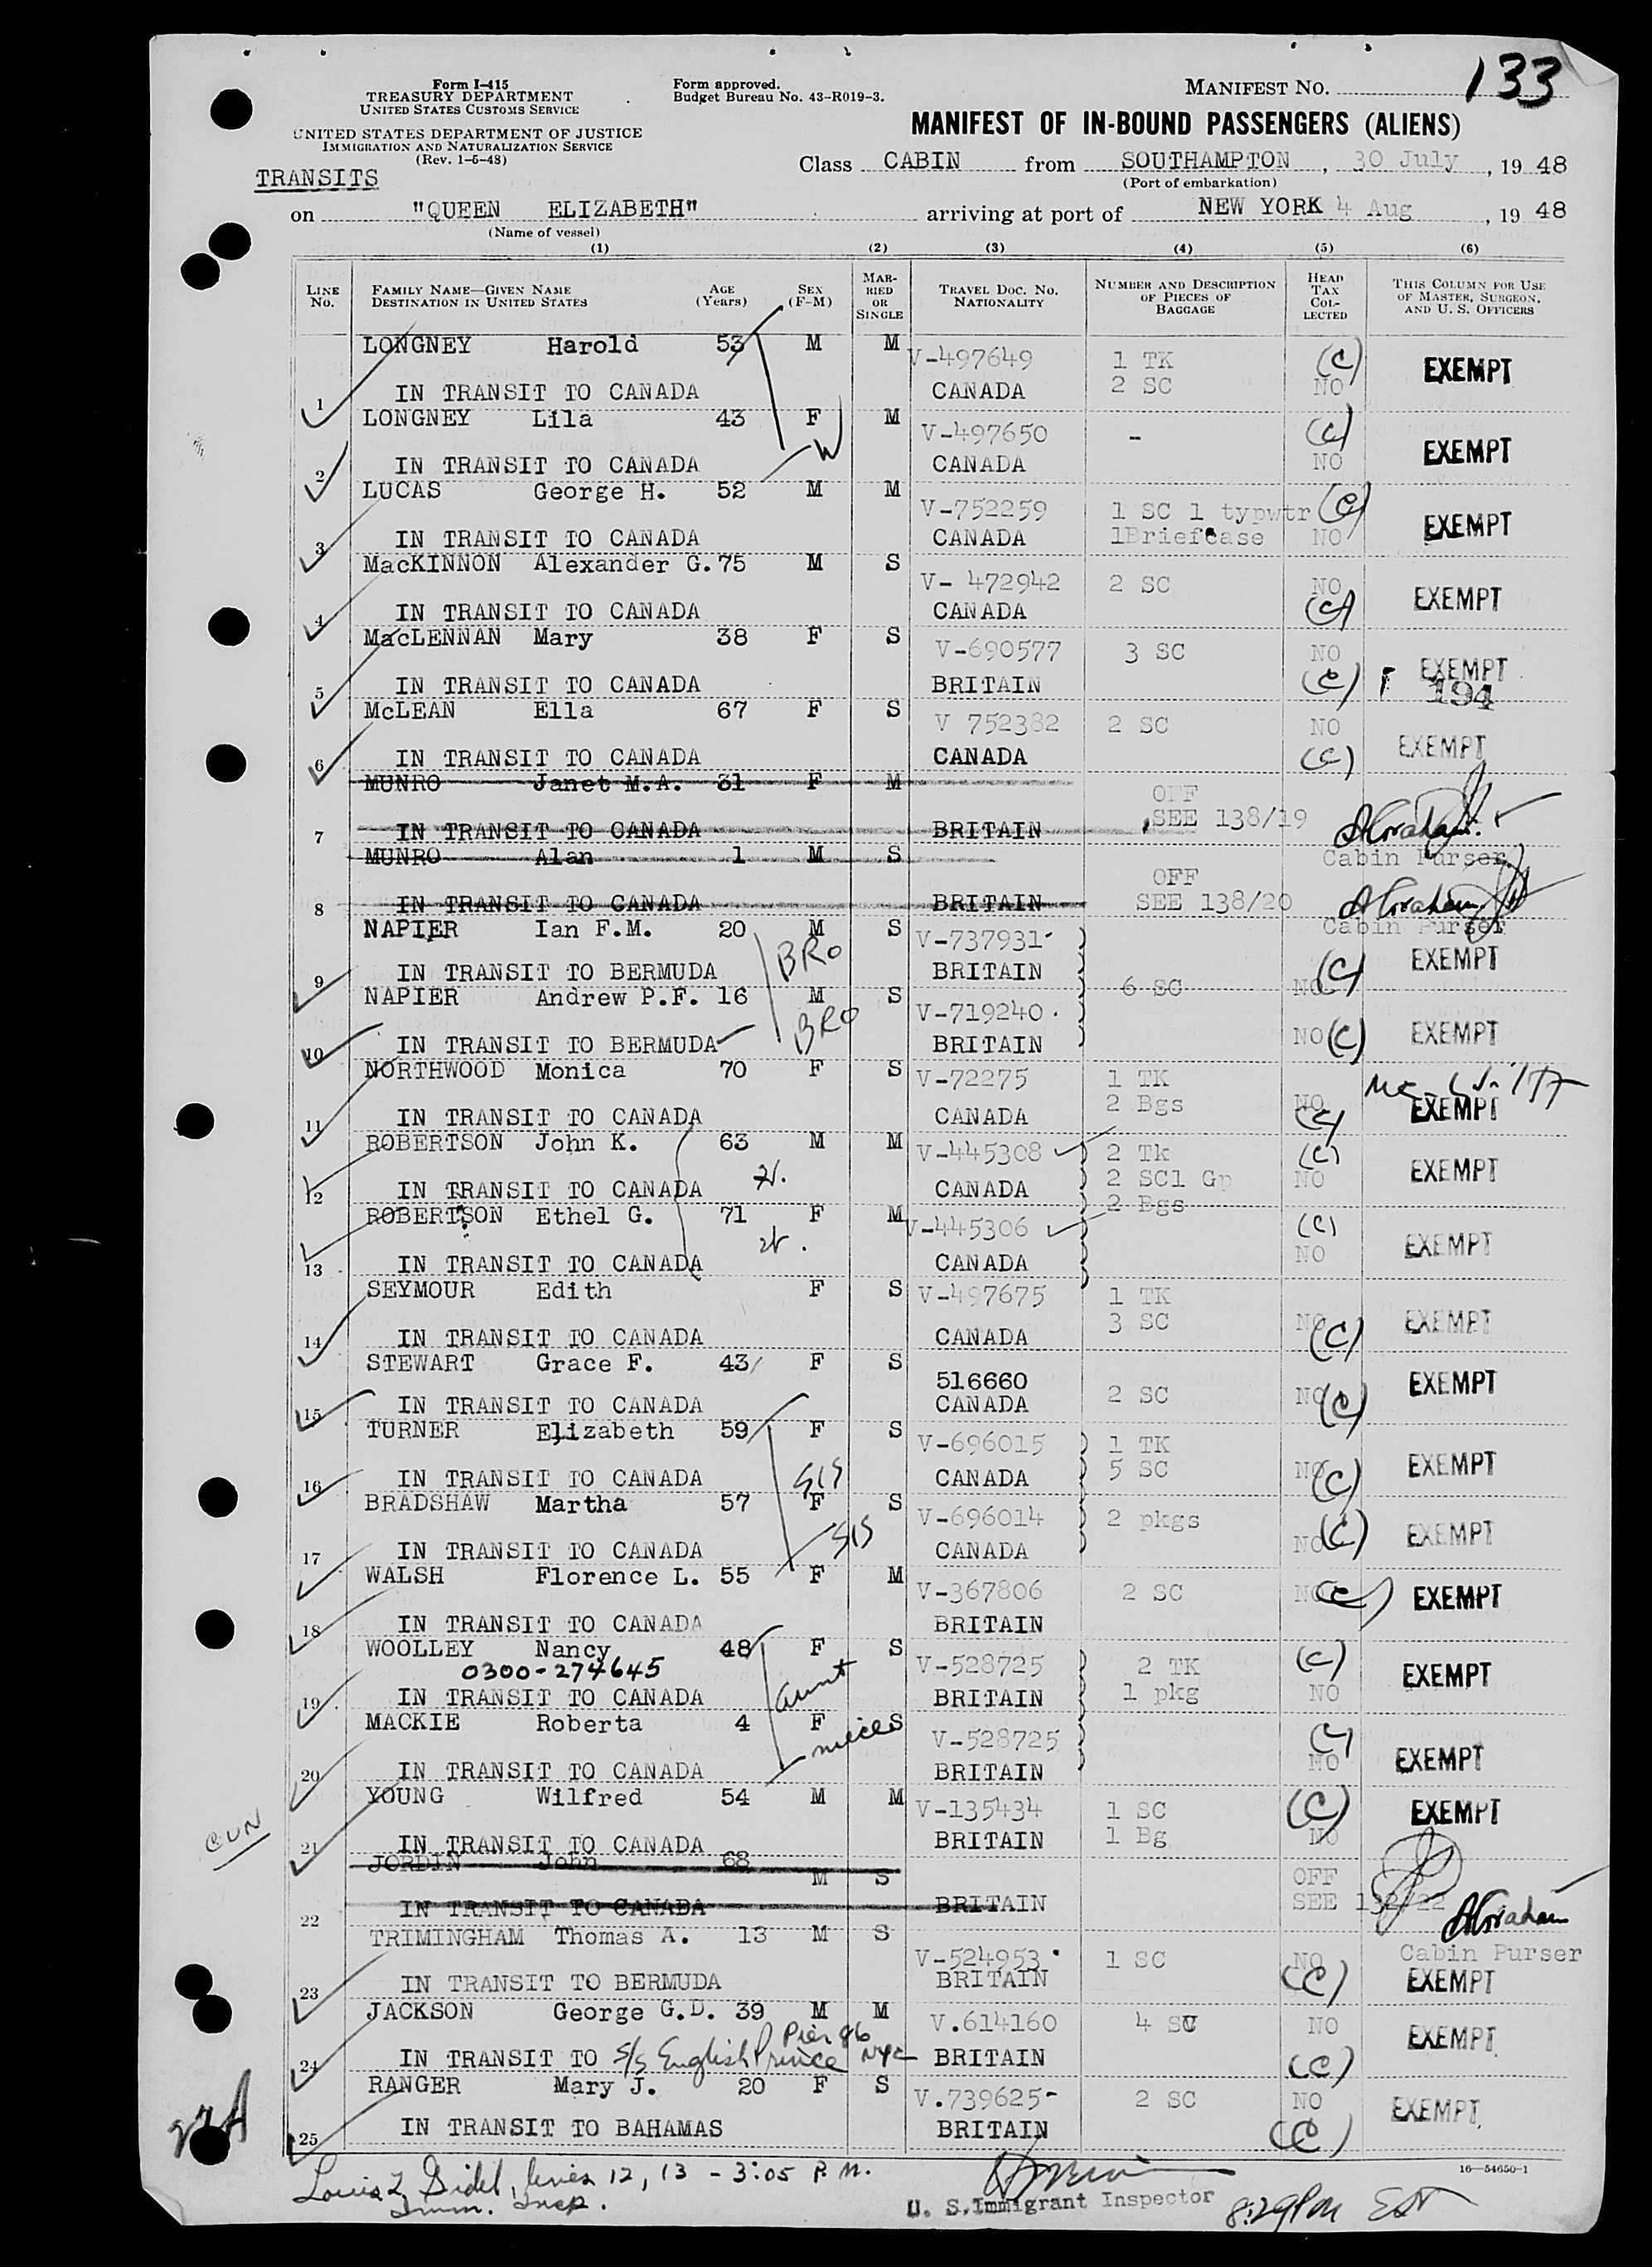 133
Form I-415
TREASURY DEPARTMENT
UNITED STATES CUSTOMS SERVICE
UNITED STATES DEPARTMENT OF JUSTICE
IMMIGRATION AND NATURALIZATION SERVICE
(Rev. 1-5-48)
TRANSITS
Form approved.
Budget Bureau No. 43-R019-3.
MANIFEST NO.
MANIFEST OF IN-BOUND PASSENGERS (ALIENS)
Class CABIN from SOUTHAMPTON, 30 July, 19 48
(Port of embarkation)
on "QUEEN ELIZABETH" arriving at port of NEW YORK 4 Aug, 19 48
(Name of vessel)
(1) (2) (3) (4) (5) (6)
LINE No. FAMILY NAME—GIVEN NAME DESTINATION IN UNITED STATES AGE (Years) SEX (F-M) MARRIED OR SINGLE TRAVEL DOC. NO. NATIONALITY NUMBER AND DESCRIPTION OF PIECES OF BAGGAGE HEAD TAX COLLECTED THIS COLUMN FOR USE OF MASTER, SURGEON, AND U. S. OFFICERS
LONGNEY Harold 53 M M V-497649 1 TK (C) EXEMPT
1 IN TRANSIT TO CANADA CANADA 2 SC NO
LONGNEY Lila 43 F M V-497650 - (C) EXEMPT
W
2 IN TRANSIT TO CANADA CANADA NO
LUCAS George H. 52 M M V-752259 1 SC 1 typwtr (C) EXEMPT
3 IN TRANSIT TO CANADA CANADA 1Briefcase NO
MacKINNON Alexander G. 75 M S V- 472942 2 SC NO EXEMPT
4 IN TRANSIT TO CANADA CANADA (C)
MacLENNAN Mary 38 F S V-690577 3 SC NO EXEMPT
5 IN TRANSIT TO CANADA BRITAIN (C) 194
McLEAN Ella 67 F S V 752382 2 SC NO EXEMPT
6 IN TRANSIT TO CANADA CANADA (C)
MUNRO Janet M.A. 31 F M OFF
7 IN TRANSIT TO CANADA BRITAIN SEE 138/19 Cabin Purser
MUNRO Alan 1 M S OFF
8 IN TRANSIT TO CANADA BRITAIN SEE 138/20 Cabin Purser
NAPIER Ian F.M. 20 M S V-737931 (C) EXEMPT
BRO
9 IN TRANSIT TO BERMUDA BRITAIN 6 SC NO
NAPIER Andrew P.F. 16 M S V-719240 NO (C) EXEMPT
BRO
10 IN TRANSIT TO BERMUDA BRITAIN
NORTHWOOD Monica 70 F S V-72275 1 TK NO EXEMPT
11 IN TRANSIT TO CANADA CANADA 2 Bgs (C)
ROBERTSON John K. 63 M M V-445308 2 Tk (C) EXEMPT
12 IN TRANSIT TO CANADA CANADA 2 SC1 Gp NO
2 Bgs
ROBERTSON Ethel G. 71 F M V-445306 (C) EXEMPT
13 IN TRANSIT TO CANADA CANADA NO
SEYMOUR Edith F S V-497675 1 TK NO EXEMPT
14 IN TRANSIT TO CANADA CANADA 3 SC (C)
STEWART Grace F. 43 F S 516660 EXEMPT
15 IN TRANSIT TO CANADA CANADA 2 SC NO (C)
TURNER Elizabeth 59 F S V-696015 1 TK EXEMPT
SIS
16 IN TRANSIT TO CANADA CANADA 5 SC NO (C)
BRADSHAW Martha 57 F S V-696014 2 pkgs (C) EXEMPT
SIS
17 IN TRANSIT TO CANADA CANADA NO
WALSH Florence L. 55 F M V-367806 2 SC NO (C) EXEMPT
18 IN TRANSIT TO CANADA BRITAIN
WOOLLEY Nancy 48 F S V-528725 2 TK (C) EXEMPT
0300-274645
aunt
19 IN TRANSIT TO CANADA BRITAIN 1 pkg NO
MACKIE Roberta 4 F S V-528725 (C)
niece
20 IN TRANSIT TO CANADA BRITAIN NO EXEMPT
YOUNG Wilfred 54 M M V-135434 1 SC (C) EXEMPT
CUN
21 IN TRANSIT TO CANADA BRITAIN 1 Bg NO
JORDIN John 68 M S OFF
22 IN TRANSIT TO CANADA BRITAIN SEE
TRIMINGHAM Thomas A. 13 M S V-524953 1 SC NO Cabin Purser
23 IN TRANSIT TO BERMUDA BRITAIN (C) EXEMPT
JACKSON George G.D. 39 M M V.614160 4 SC NO EXEMPT
24 IN TRANSIT TO S/S English Prince Pier 86 NYC BRITAIN (C)
RANGER Mary J. 20 F S V.739625 2 SC NO EXEMPT
25 IN TRANSIT TO BAHAMAS BRITAIN (C)
16—54650-1
Louis L Gidel, lines 12, 13 - 3:05 P.M.
Imm. Insp.
U. S. Immigrant Inspector
8:29 PM EST